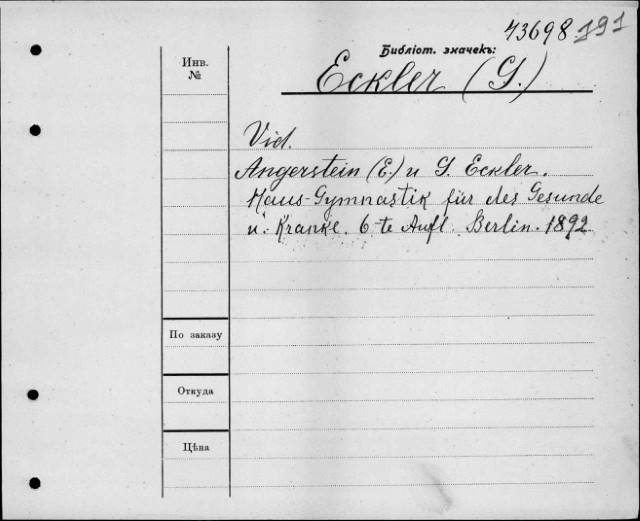 43698.191
Библіот. значекъ:
Инв.
№
Eckler (G.)
Vid.
Angerstein (E.) u G. Eckler.
Haus-Gymnastik für des Gesunde
u. Kranke. 6-te Aufl. Berlin. 1892
По заказу
Откуда
Цѣна